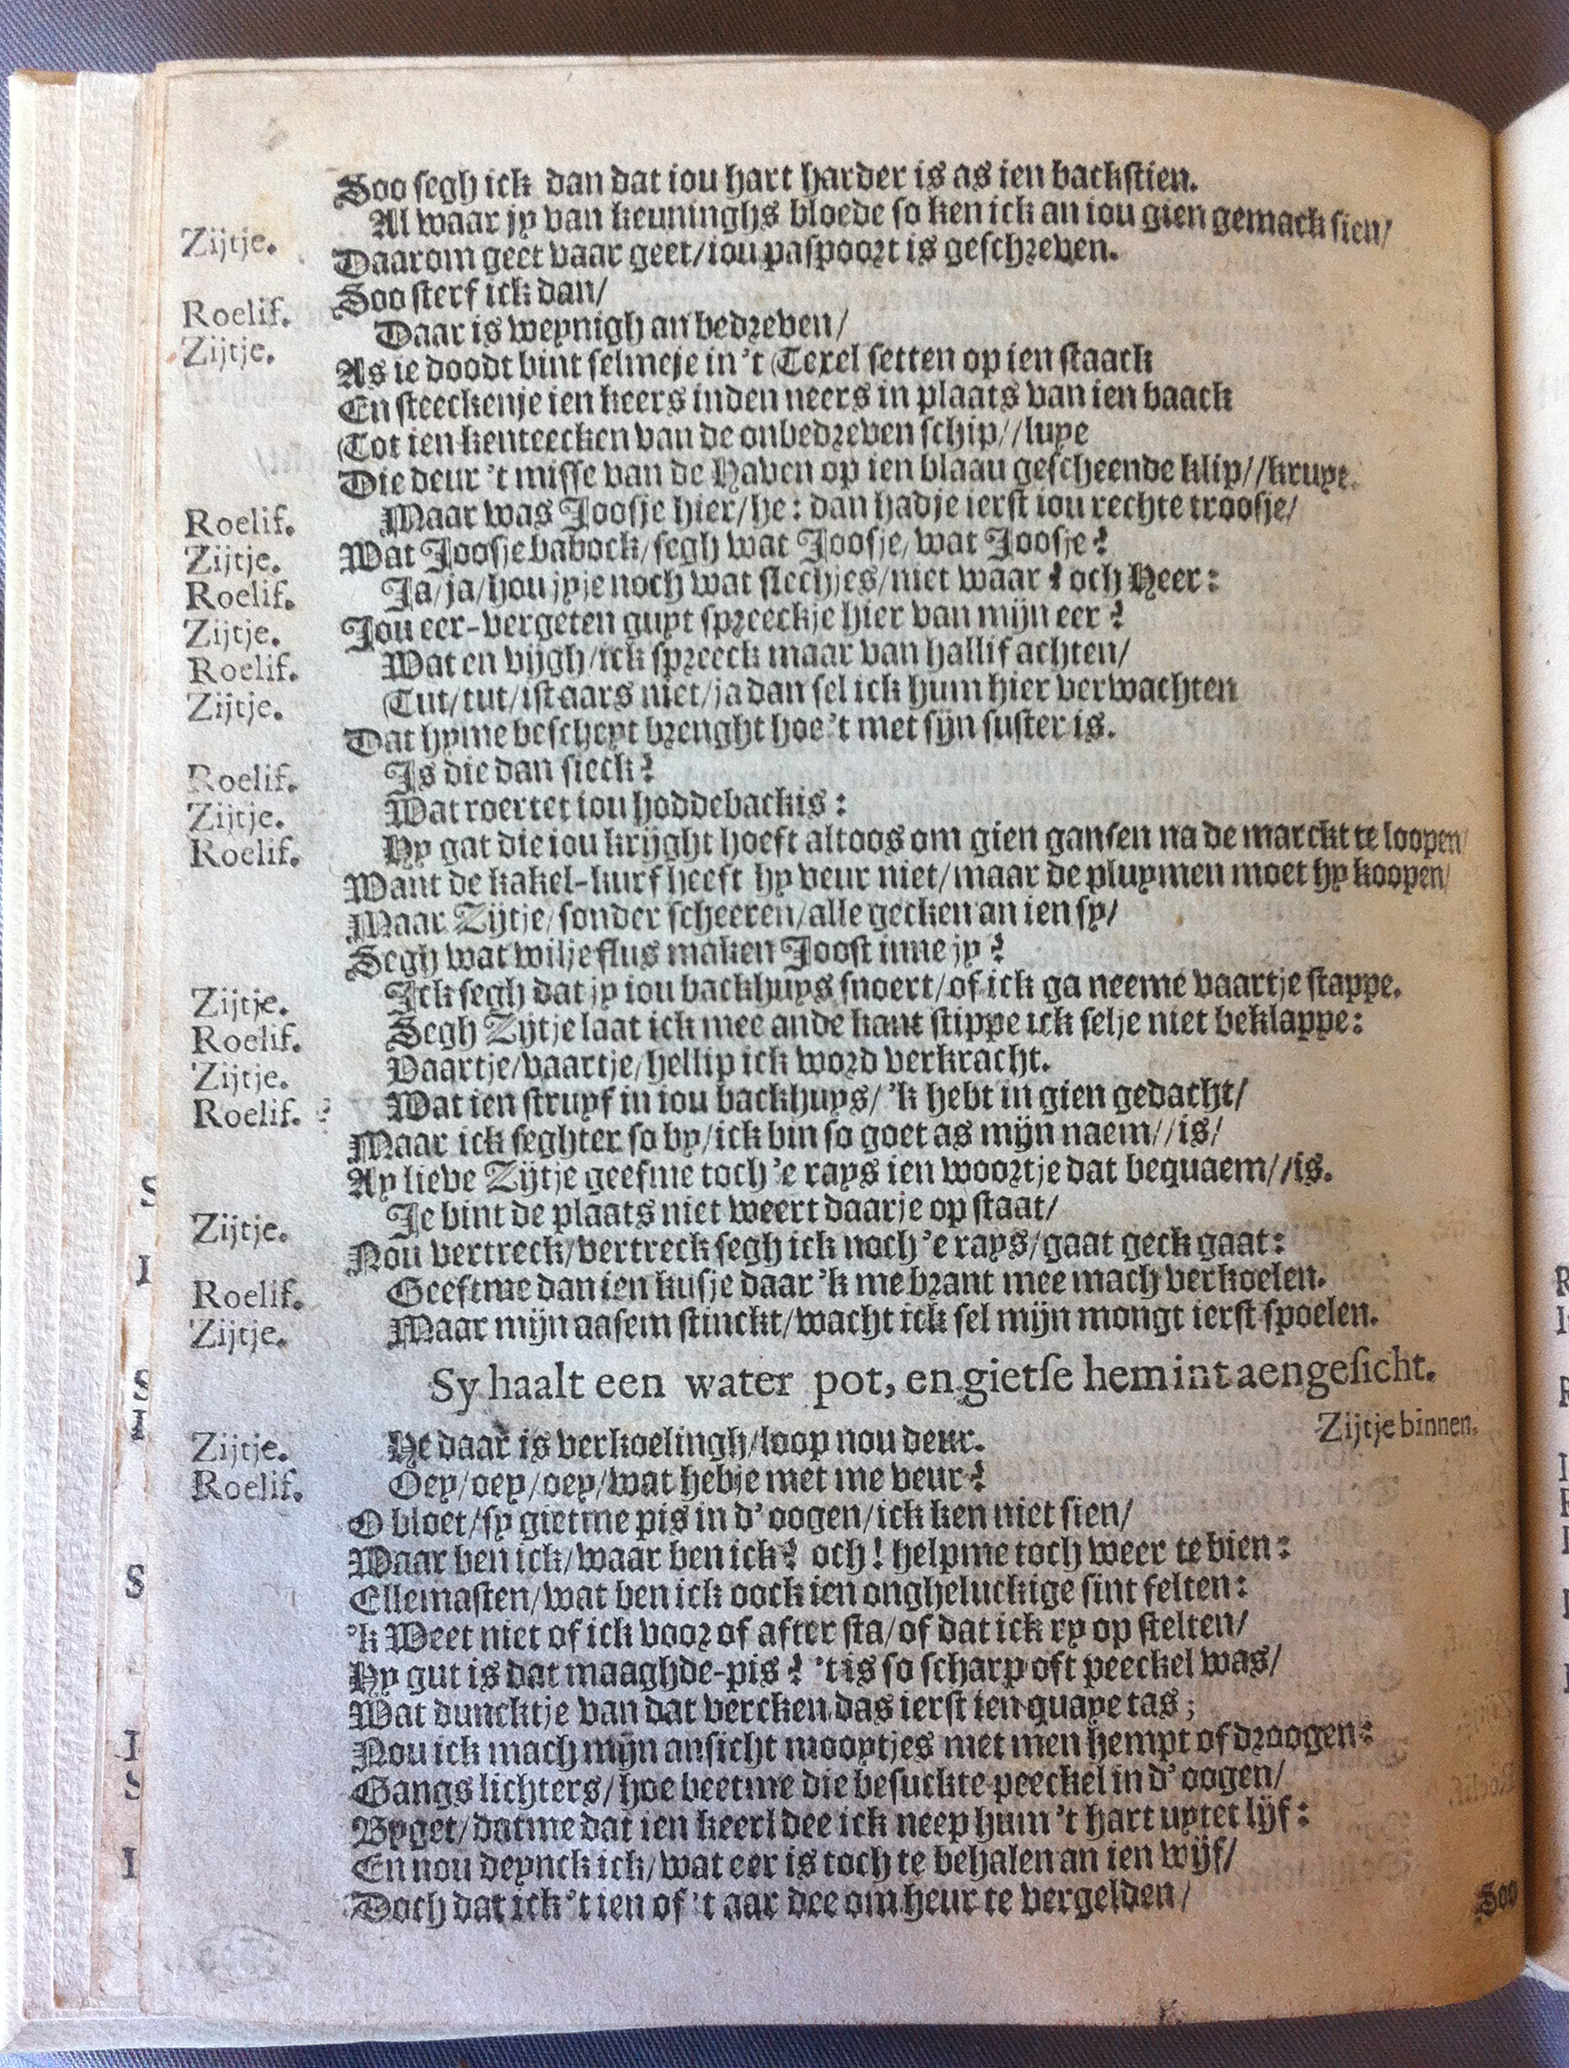 Soo segh ick dan dat iou hart harder is as ien backstien.
Zijtje. Al waar jy van keuninghs bloede so ken ick an iou gien gemack sien/
Daarom geet vaar geet/iou paspoort is geschreven.
Roelif. Soo sterf ick dan/
Zijtje. Daar is weynigh an bedreven/
As ie doodt bint selmeje in 't Texel setten op ien staack
En steeckenje ien keers inden neers in plaats van ien baack
Tot ien kenteecken van de onbedreven schip//luye
Die deur 't misse van de Haven op ien blaau gescheende klip//kruye.
Roelif. Maar was Joosje hier/he: dan hadje ierst iou rechte troosje/
Zijtje. Wat Joosje babock/segh wat Joosje/wat Joosje?
Roelif. Ja/ja/hou jyje noch wat slechjes/niet waar? och Heer:
Zijtje. Jou eer-vergeten guyt spreeckje hier van mijn eer?
Roelif. Wat en vijgh/ick spreeck maar van hallif achten/
Zijtje. Tut/tut/ist aars niet/ja dan sel ick hum hier verwachten
Dat hyme bescheyt brenght hoe 't met sijn suster is.
Roelif. Is die dan sieck?
Zijtje. Wat roertet iou hoddebackis:
Roelif. Hy gat die iou krijght hoeft altoos om gien gansen na de marckt te loopen/
Want de kakel-kurf heeft hy veur niet/maar de pluymen moet hy koopen/
Maar Zijtje/sonder scheeren/alle gecken an ien sy/
Segh wat wilje flus maken Joost inne jy?
Zijtje. Ick segh dat jy iou backhuys snoert/of ick ga neeme vaartje stappe.
Roelif. Segh Zijtje laat ick mee ande kant stippe ick selje niet beklappe:
Zijtje. Vaartje/vaartje/hellip ick word verkracht.
Roelif. Wat ien struyf in iou backhuys/'k hebt in gien gedacht/
Maar ick seghter so by/ick bin so goet as mijn naem//is/
Ay lieve Zijtje geefme toch 'e rays ien woortje dat bequaem//is.
Zijtje. Je bint de plaats niet weert daarje op staat/
Nou vertreck/vertreck segh ick noch 'e rays/gaat geck gaat:
Roelif. Geeftme dan ien kusje daar 'k me brant mee mach verkoelen.
Zijtje. Maar mijn aasem stinckt/wacht ick sel mijn mongt ierst spoelen.
Sy haalt een water pot, en gietse hem int aengesicht.
Zijtje binnen.
Zijtje. He daar is verkoelingh/loop nou deur.
Roelif. Oey/oey/oey/wat hebje met me veur?
O bloet/sy gietme pis in d'oogen/ick ken niet sien/
Waar ben ick/waar ben ick? och! helpme toch weer te bien:
Ellemasten/wat ben ick oock ien ongheluckige sint felten:
'k Weet niet of ick voor of after sta/of dat ick ry op stelten/
Hy gut is dat maaghde-pis? 't is so scharp oft peeckel was/
Wat duncktje van dat vercken das ierst ien quaye tas;
Nou ick mach mijn ansicht mooytjes met men hempt of droogen:
Gangs lichters/hoe beetme die besuckte peeckel in d'oogen/
Byget/datme dat ien keerl dee ick neep hum 't hart uytet lijf:
En nou deynck ick/wat eer is toch te behalen an ien wijf/
Doch dat ick 't ien of 't aar dee om heur te vergelden/
Soo